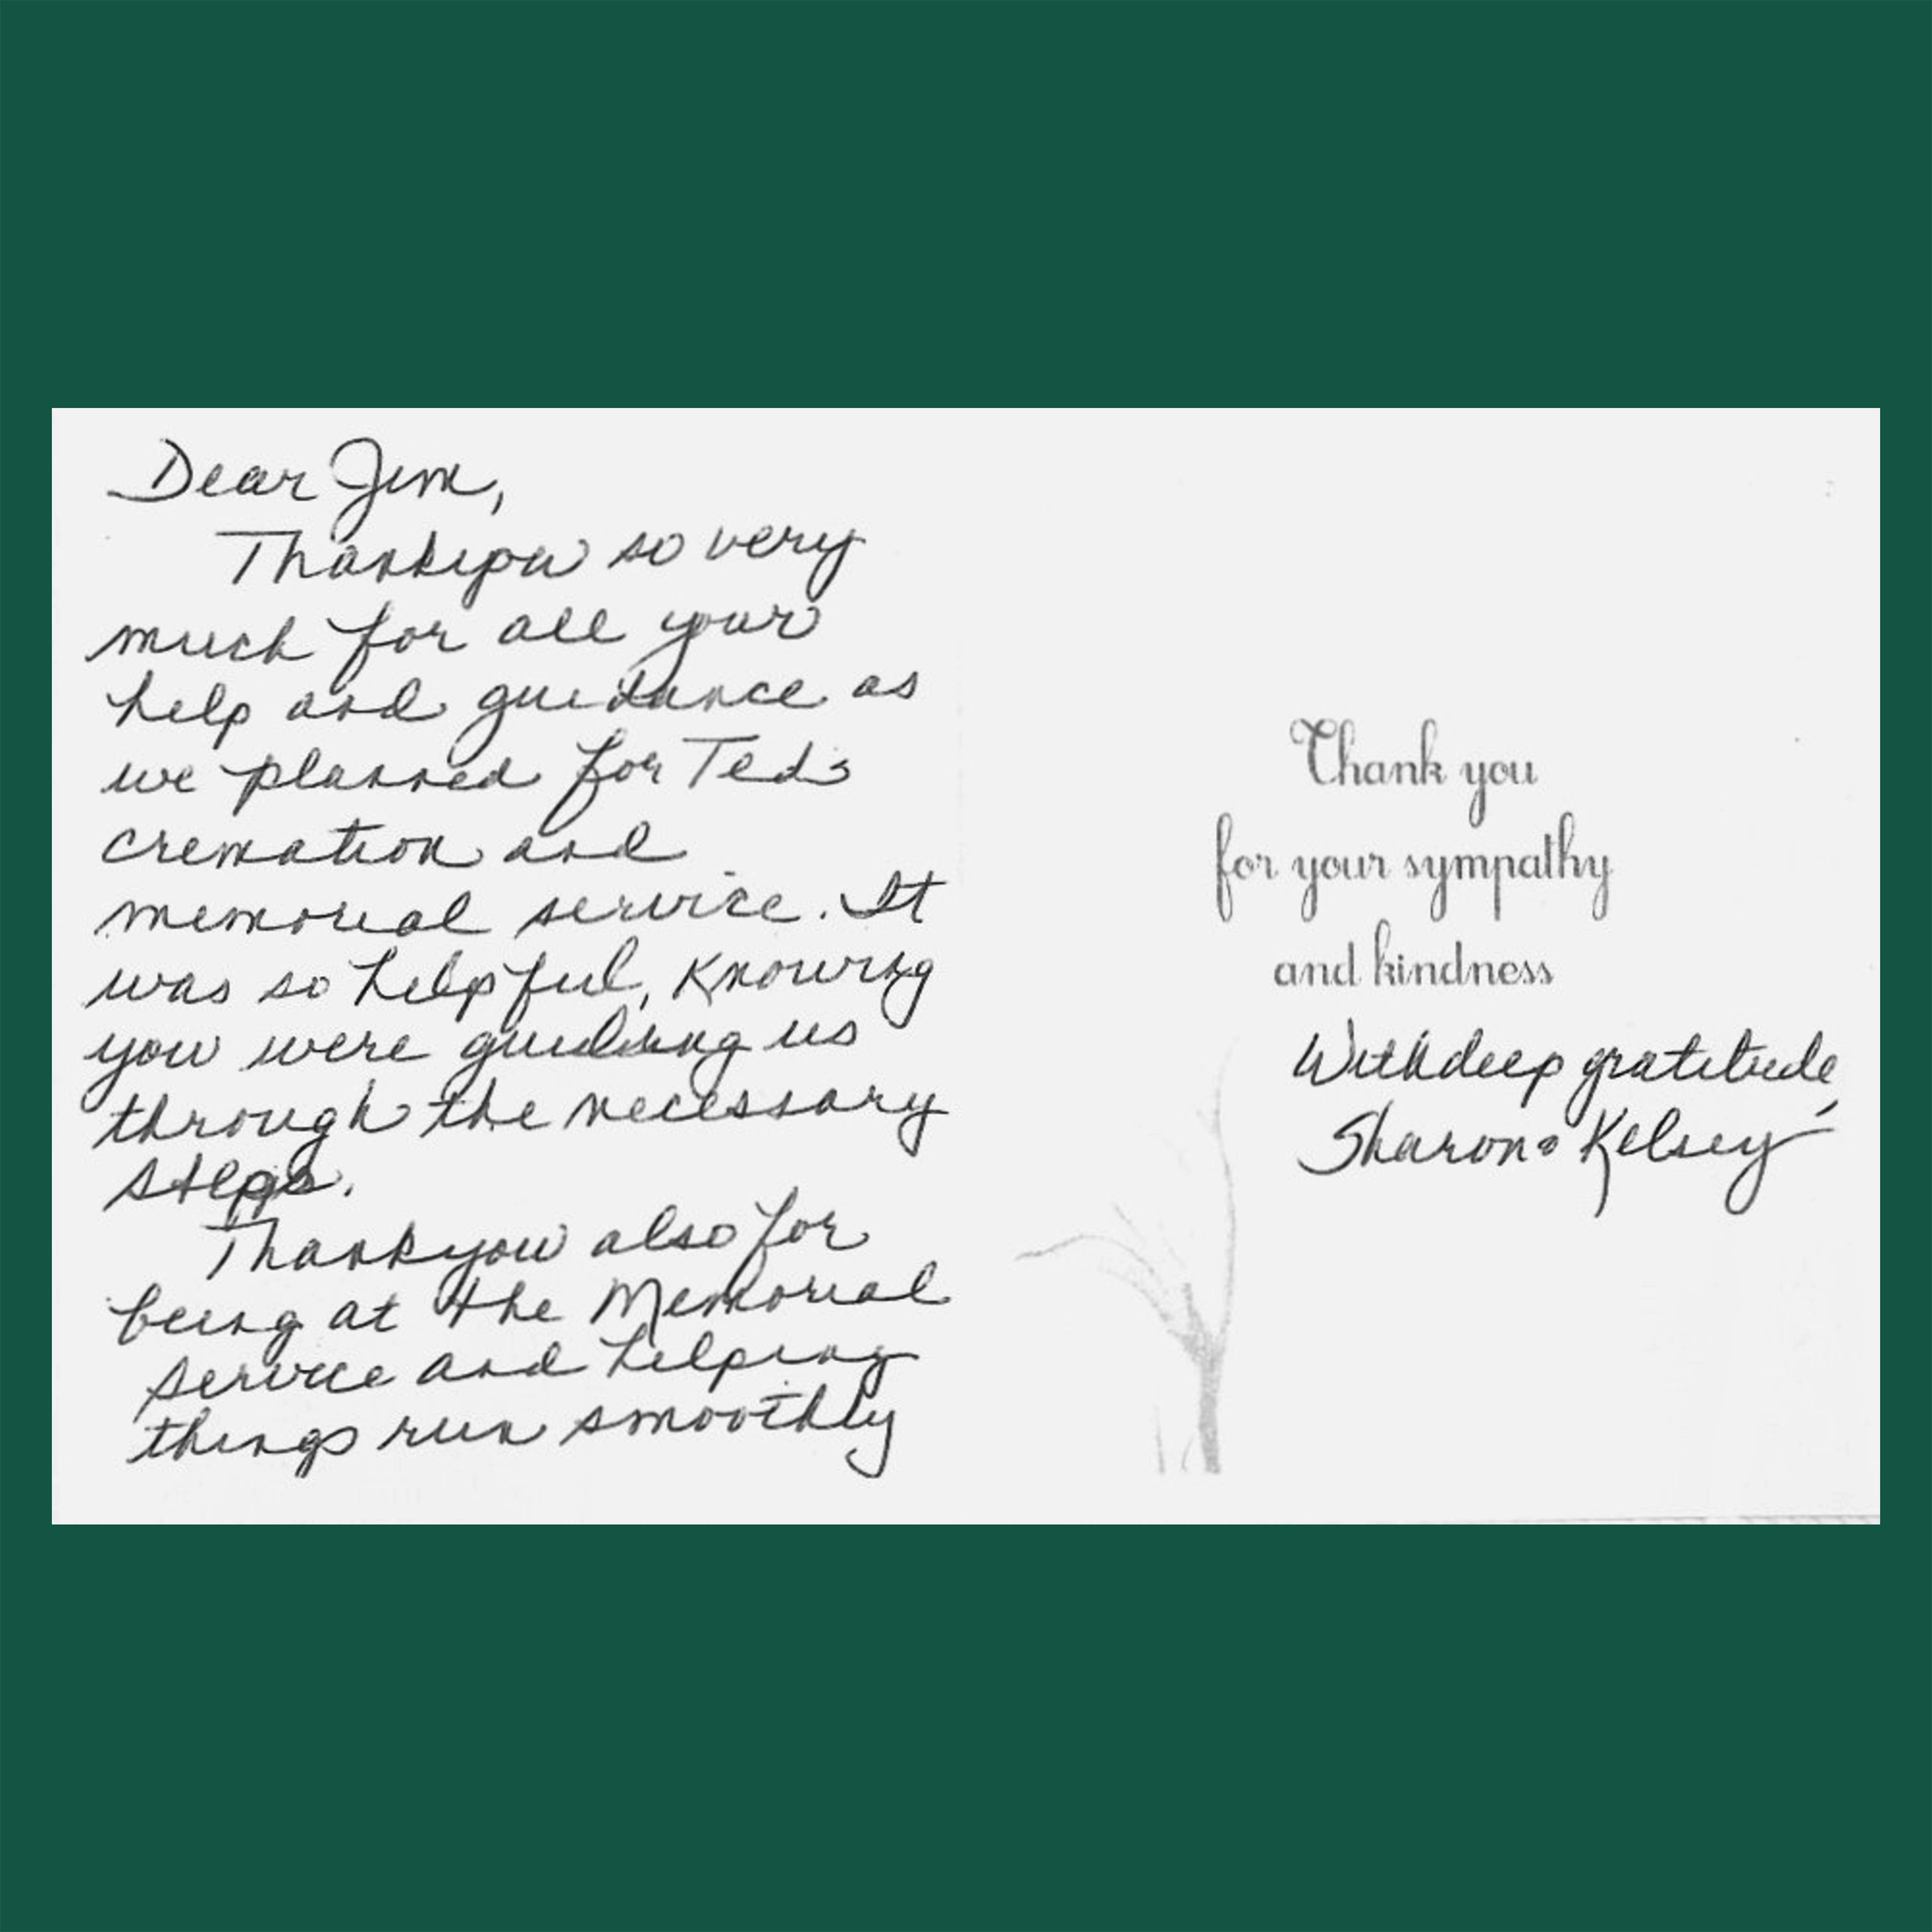 Dear Jim,
Thankyou so very
much for all your
help and guidance as
we planned for Teds
cremation and
memorial service. It
was so helpful, knowing
you were guiding us
through the necessary
steps.
Thankyou also for
being at the Memorial
service and helping
things run smoothly
Thank you
for your sympathy
and kindness
With deep gratitude,
Sharon & Kelsey